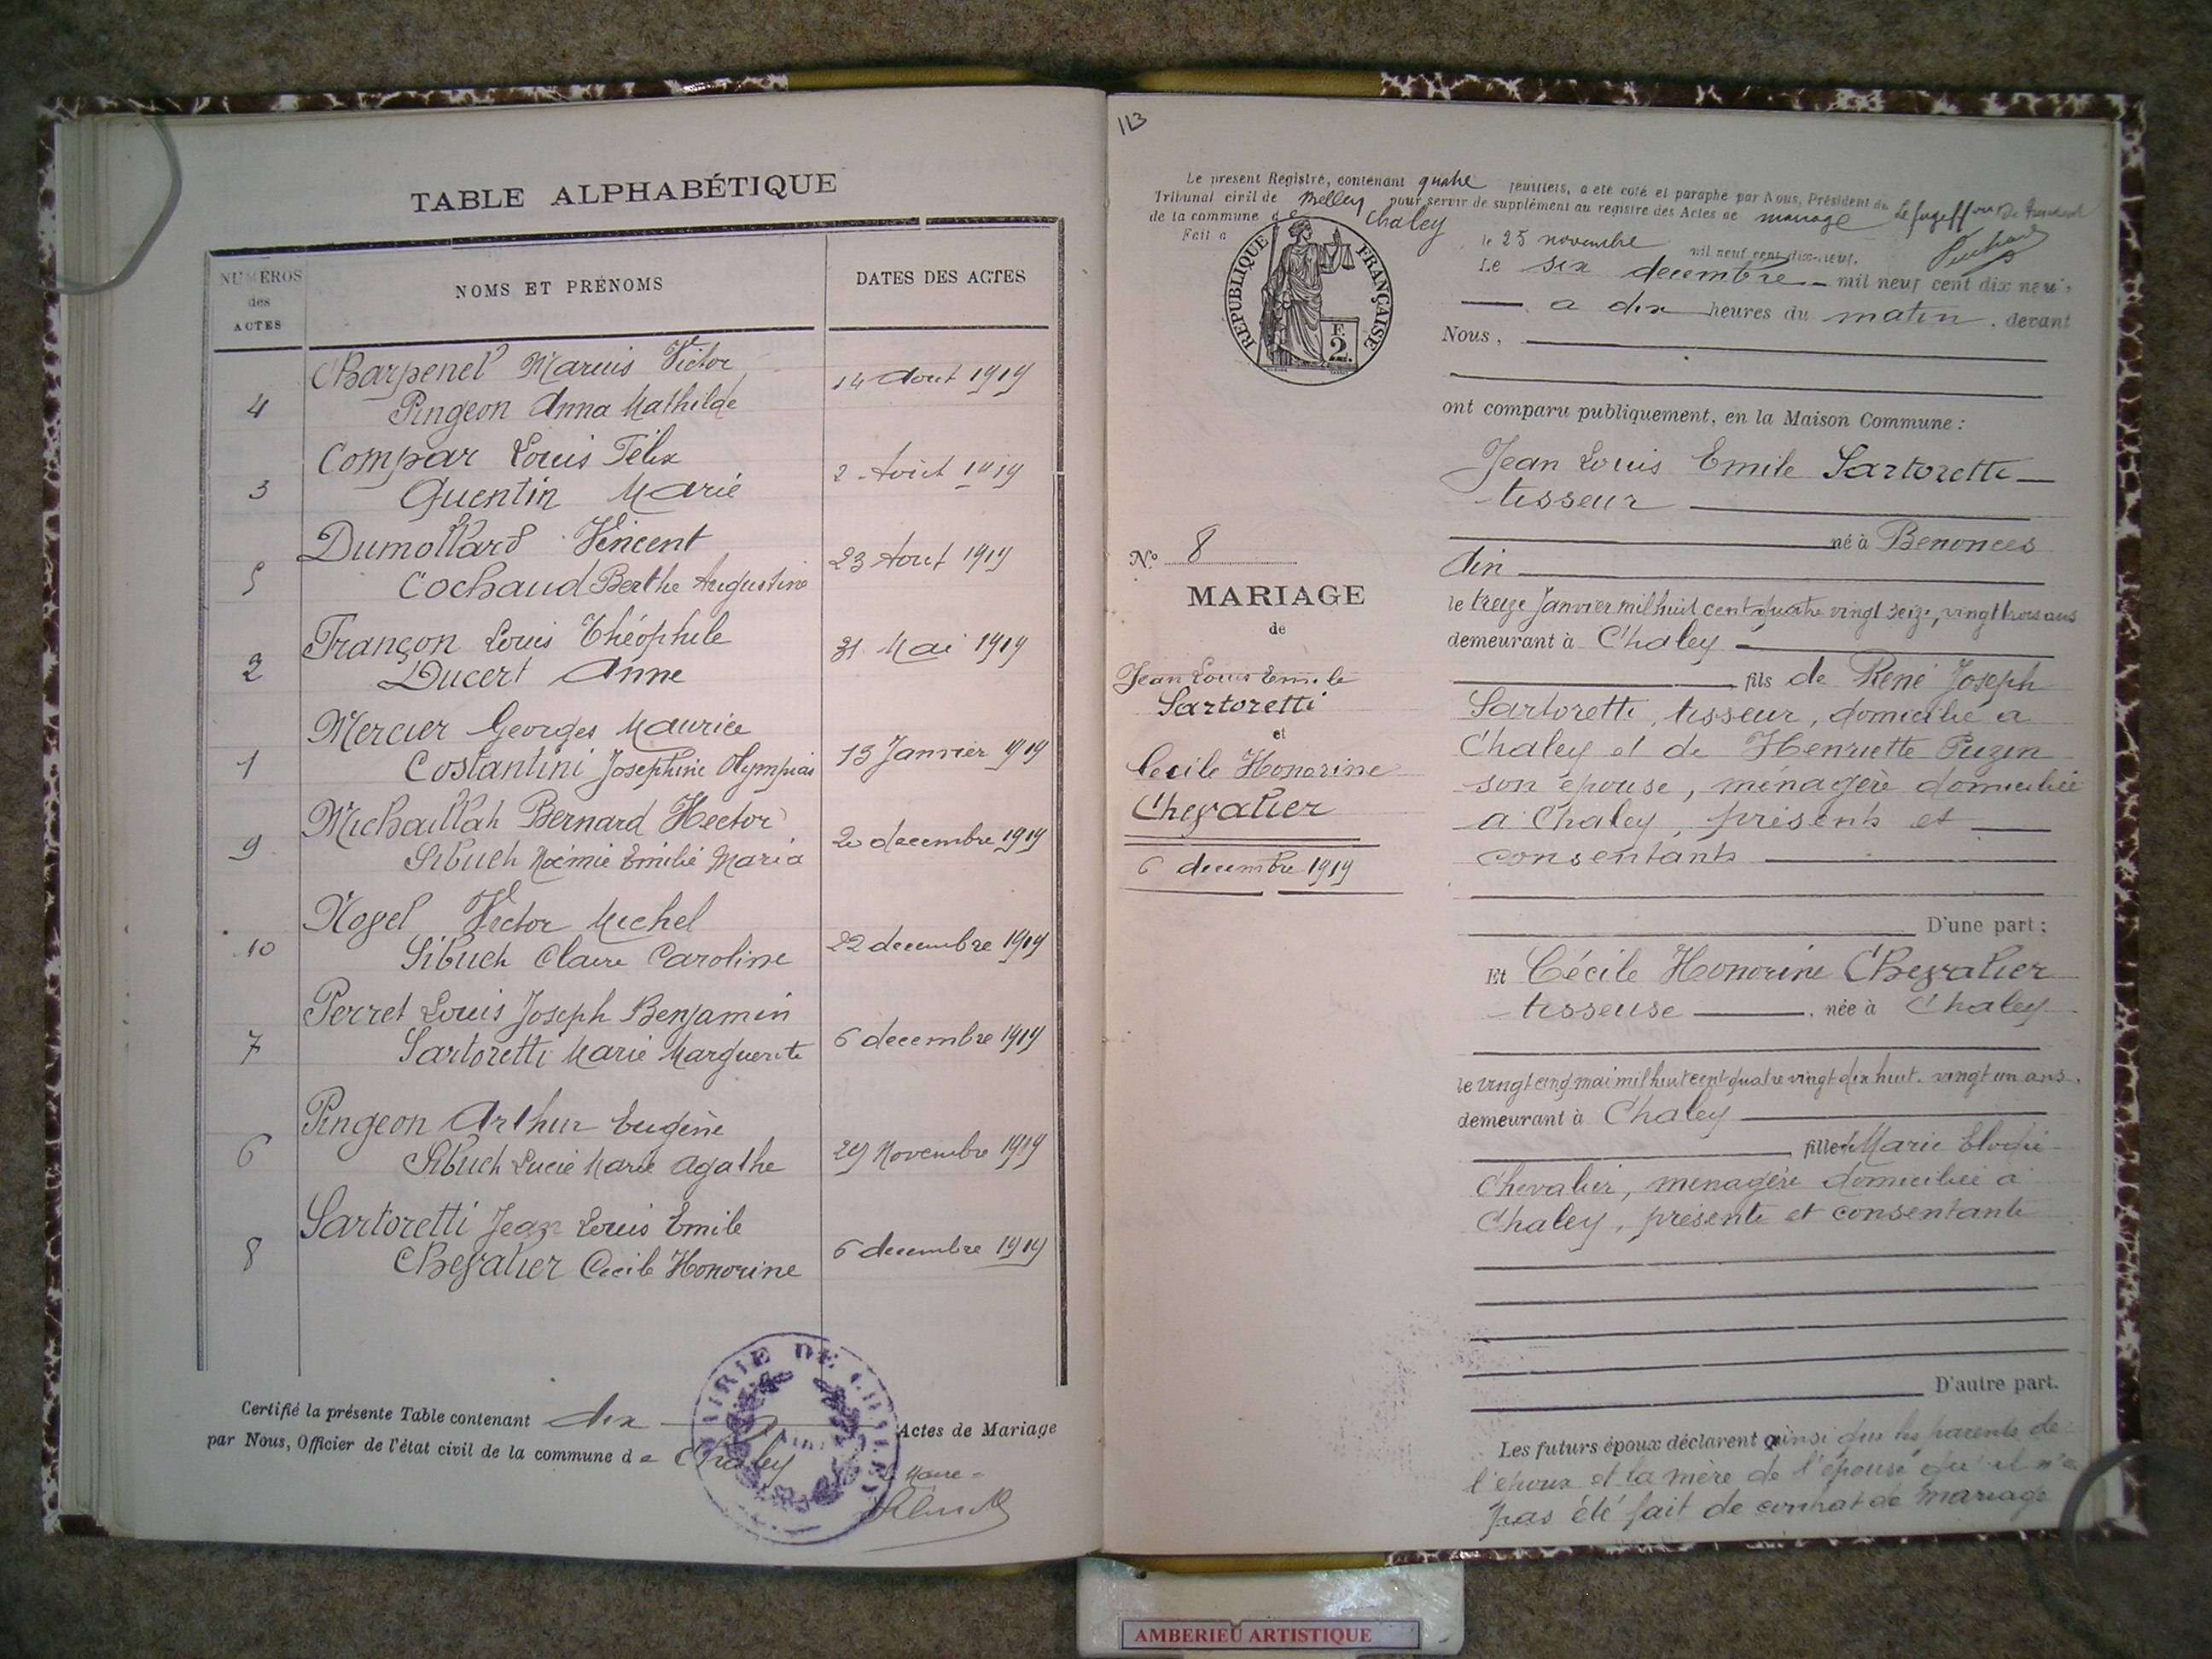 TABLE ALPHABÉTIQUE
NUMÉROS
des
ACTES
NOMS ET PRÉNOMS
DATES DES ACTES
4 Charpenel Marius Victor 14 Aout 1919
Pingeon Anna Mathilde
3 Compar Louis Félix 2 Août 1919
Quentin Marie
5 Dumollard Vincent 23 Aout 1919
Cochaud Berthe Augustine
2 Françon Louis Théophile 31 Mai 1919
Ducert Anne
1 Mercier Georges Maurice 13 Janvier 1919
Costantini Joséphine Olympias
9 Michaillah Bernard Hector 20 decembre 1919
Sibuet Noémie Emilie Maria
10 Nogel Victor Michel 22 decembre 1919
Sibuet Claire Caroline
7 Perret Louis Joseph Benjamin 6 decembre 1919
Sartoretti Marie Marguerite
6 Pingeon Arthur Eugène 29 Novembre 1919
Sibuet Lucie Marie Agathe
8 Sartoretti Jean Louis Emile 6 decembre 1919
Chevalier Cecile Honorine
Certifié la présente Table contenant dix Actes de Mariage
par Nous, Officier de l'état civil de la commune de Chaley
MAIRIE DE CHALEY
Le Maire
113
Le présent Registre, contenant quatre feuillets, a été coté et paraphé par Nous, Président du
Tribunal civil de Belley pour servir de supplément au registre des Actes de mariage
de la commune de Chaley
Fait a le 25 novembre mil neuf cent dix-neuf.
RÉPUBLIQUE FRANÇAISE
F.
2.
Le six decembre mil neuf cent dix neuf,
a dix heures du matin, devant
Nous,
ont comparu publiquement, en la Maison Commune :
Jean Louis Emile Sartoretti
tisseur
né à Benonces
Ain
le treize Janvier mil huit cent quatre vingt seize, vingt trois ans
demeurant à Chaley
fils de René Joseph
Sartoretti, tisseur, domicilié a
Chaley et de Henriette Puzin
son épouse, ménagère domiciliée
a Chaley, présents et
consentants
D'une part ;
No 8
MARIAGE
de
Jean Louis Emile
Sartoretti
et
Cecile Honorine
Chevalier
6 decembre 1919
Et Cécile Honorine Chevalier
tisseuse, née à Chaley
le vingt cinq mai mil huit cent quatre vingt dix huit, vingt un ans,
demeurant à Chaley
fille de Marie Elodie
Chevalier, menagère domiciliée à
Chaley, présente et consentante
D'autre part.
Les futurs époux déclarent ainsi que les parents de
l'époux et la mère de l'épouse qu'il n'a
pas été fait de contrat de mariage
AMBERIEU ARTISTIQUE